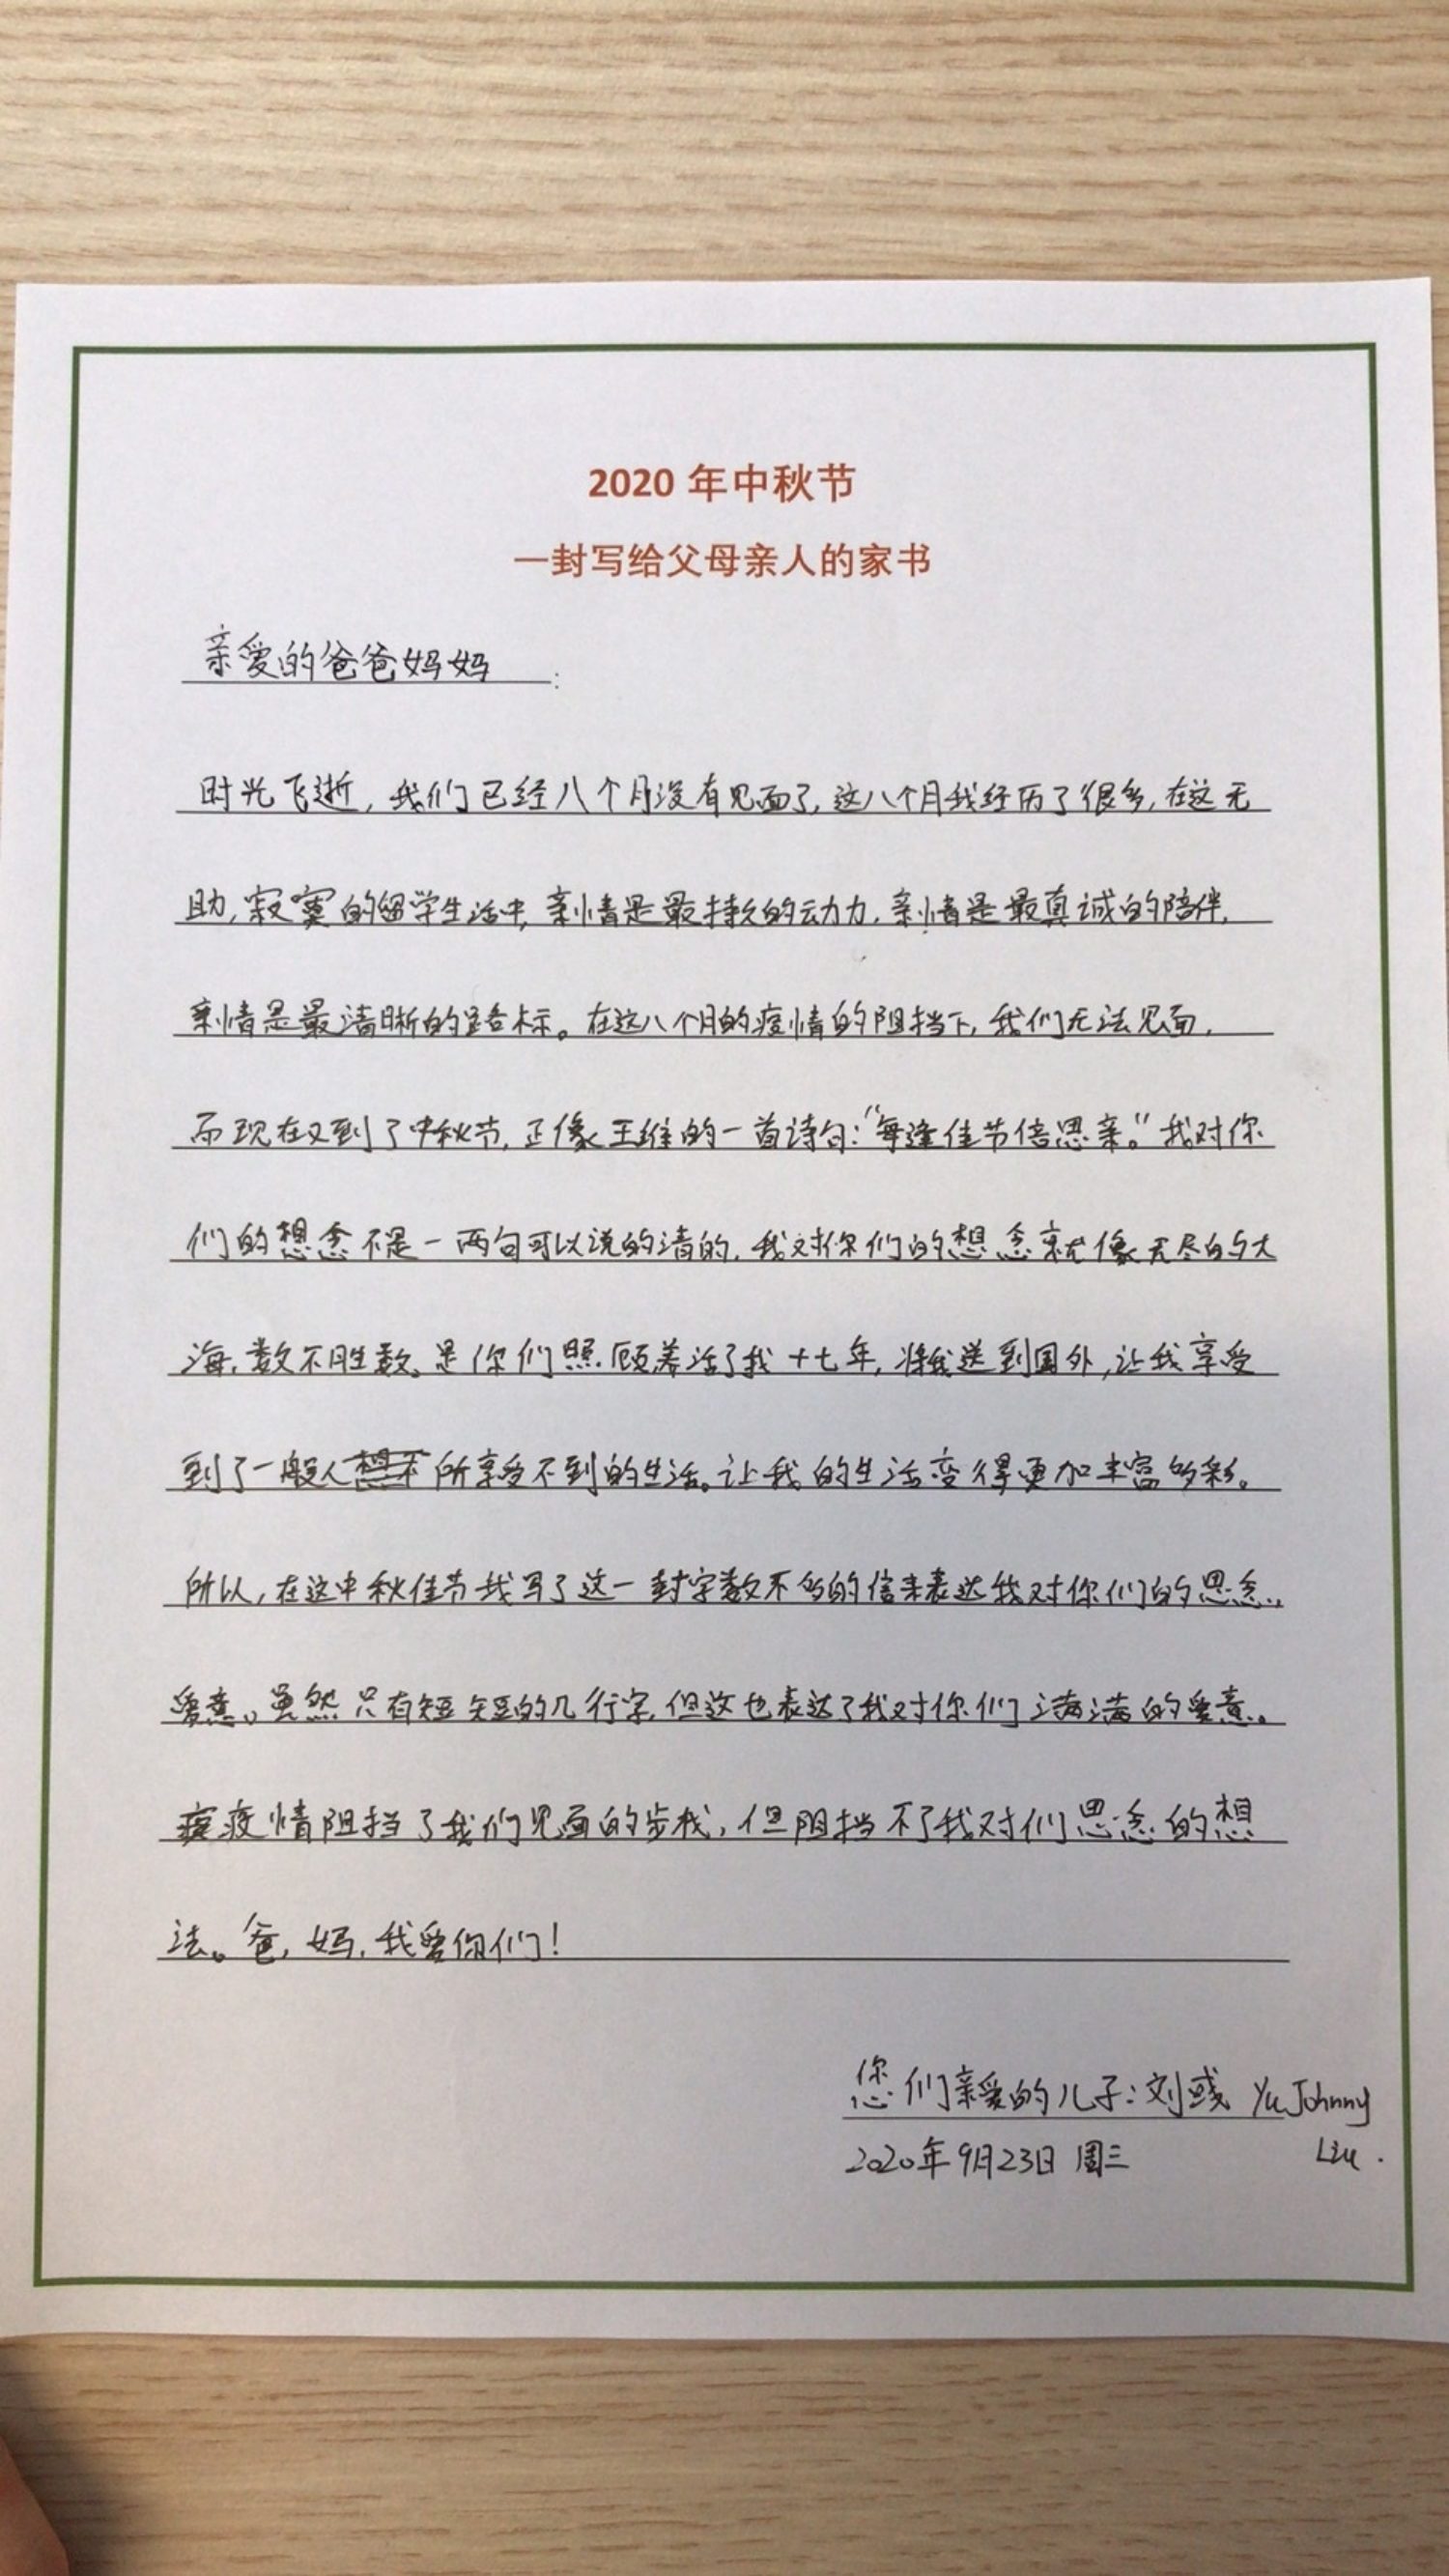 2020 年中秋节
一封写给父母亲人的家书
亲爱的爸爸妈妈:
时光飞逝,我们已经八个月没有见面了,这八个月我经历了很多,在这无
助,寂寞的留学生活中,亲情是最持久的动力,亲情是最真诚的陪伴,
亲情是最清晰的路标。在这八个月的疫情的阻挡下,我们无法见面,
而现在又到了中秋节,正像王维的一首诗句:“每逢佳节倍思亲。”我对你
们的想念不是一两句可以说的清的,我对你们的想念就像无尽的大
海,数不胜数。是你们照顾养活了我十七年,将我送到国外,让我享受
到了一般人所享受不到的生活。让我的生活变得更加丰富多彩。
所以,在这中秋佳节我写了这一封字数不多的信来表达我对你们的思念,
爱意。虽然只有短短的几行字,但这也表达了我对你们满满的爱意。
疫情阻挡了我们见面的步伐,但阻挡不了我对们思念的想
法。爸,妈,我爱你们!
您们亲爱的儿子:刘彧 Yu Johnny
Liu.
2020年9月23日 周三